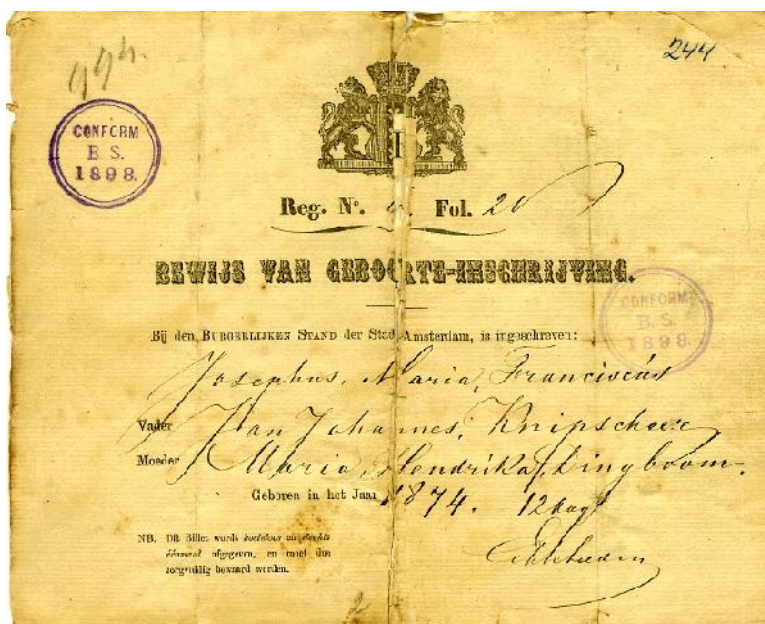 244
CONFORM
B. S.
1898.
Reg. N°. 4. Fol.
BEWIJS VAN GEBOORTE-INSCHRIJVING.
CONFORM
B. S.
1898.
Bij den BURGERLIJKEN STAND der Stad Amsterdam, is ingeschreven:
Josephus, Maria, Franciscus
Vader Van Johannes, Knipscheer
Moeder Maria, Hendrika, Dingboom.
Geboren in het Jaar 1874. 12
NB. Dit Billet wordt kosteloos en slechts
éénmaal afgegeven, en moet dus
zorgvuldig bewaard worden.
2